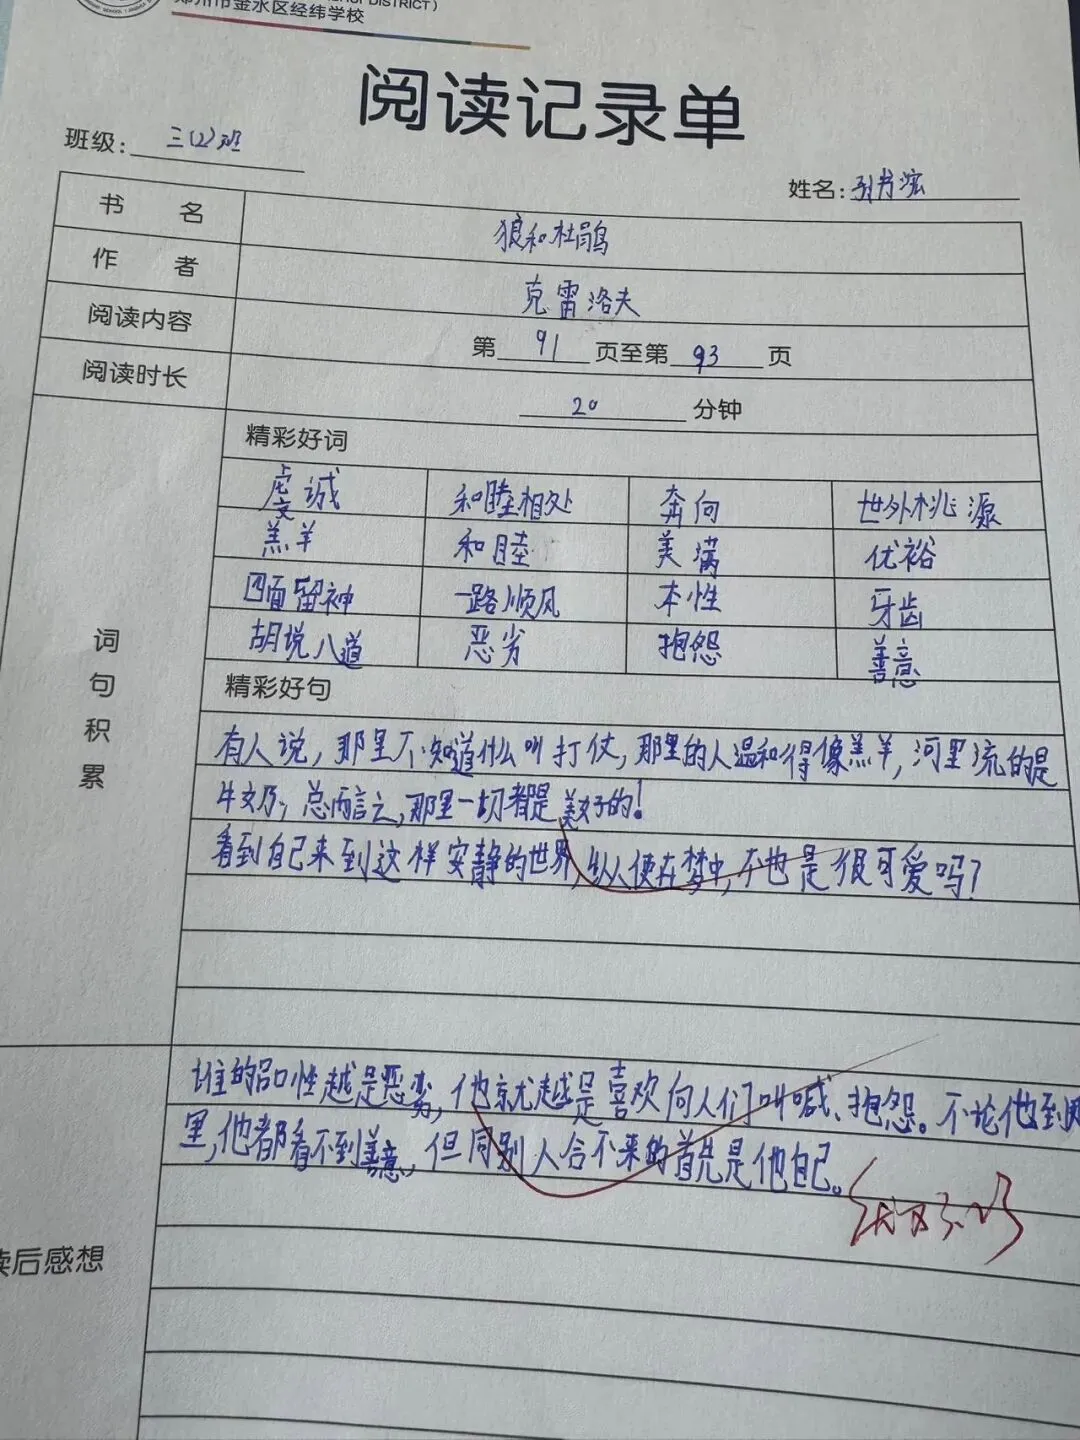 DISTRICT)
郑州市金水区经纬学校
阅读记录单
班级: 三(2)班
姓名:
书 名 狼和杜鹃
作 者 克雷洛夫
阅读内容 第 91 页至第 93 页
阅读时长 20 分钟
词句积累
精彩好词
虔诚 和睦相处 奔向 世外桃源
羔羊 和睦 美满 优裕
四面留神 一路顺风 本性 牙齿
胡说八道 恶劣 抱怨 善意
精彩好句
有人说,那里不知道什么叫打仗,那里的人温和得像羔羊,河里流的是
牛奶;总而言之,那里一切都是美好的!
看到自己来到这样安静的世界,纵使在梦中,不也是很可爱吗?
读后感想
谁的品性越是恶劣,他就越是喜欢向人们叫喊、抱怨。不论他到
里,他都看不到善意,但同别人合不来的首先是他自己。